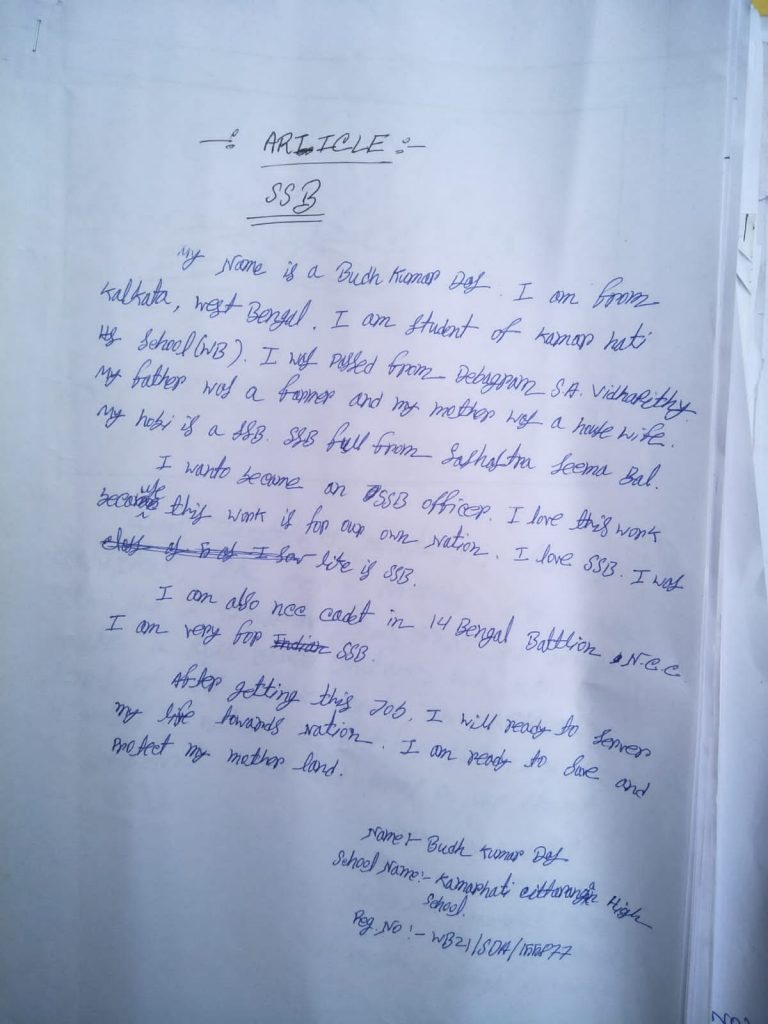 -: ARTICLE :-
SSB
My Name is a Budh Kumar Das. I am from
Kalkata, West Bengal. I am student of Kamar hati
Hs School (WB). I was passed from Debagram S.A. Vidhapithy.
My father was a farmer and my mother was a house wife.
My hobi is a SSB. SSB full from Sashastra Seema Bal.
I wanto become an SSB officer. I love this work
because this work is for our own Nation. I love SSB. I was
life is SSB.
I am also ncc cadet in 14 Bengal Battlion N.C.C
I am very for SSB.
After getting this Job, I will ready to server
my life towards Nation. I am ready to save and
Protect my mother land.
Name:- Budh Kumar Das
School Name:- Kamarhati High
School.
Reg. No :- WB21/SDA/